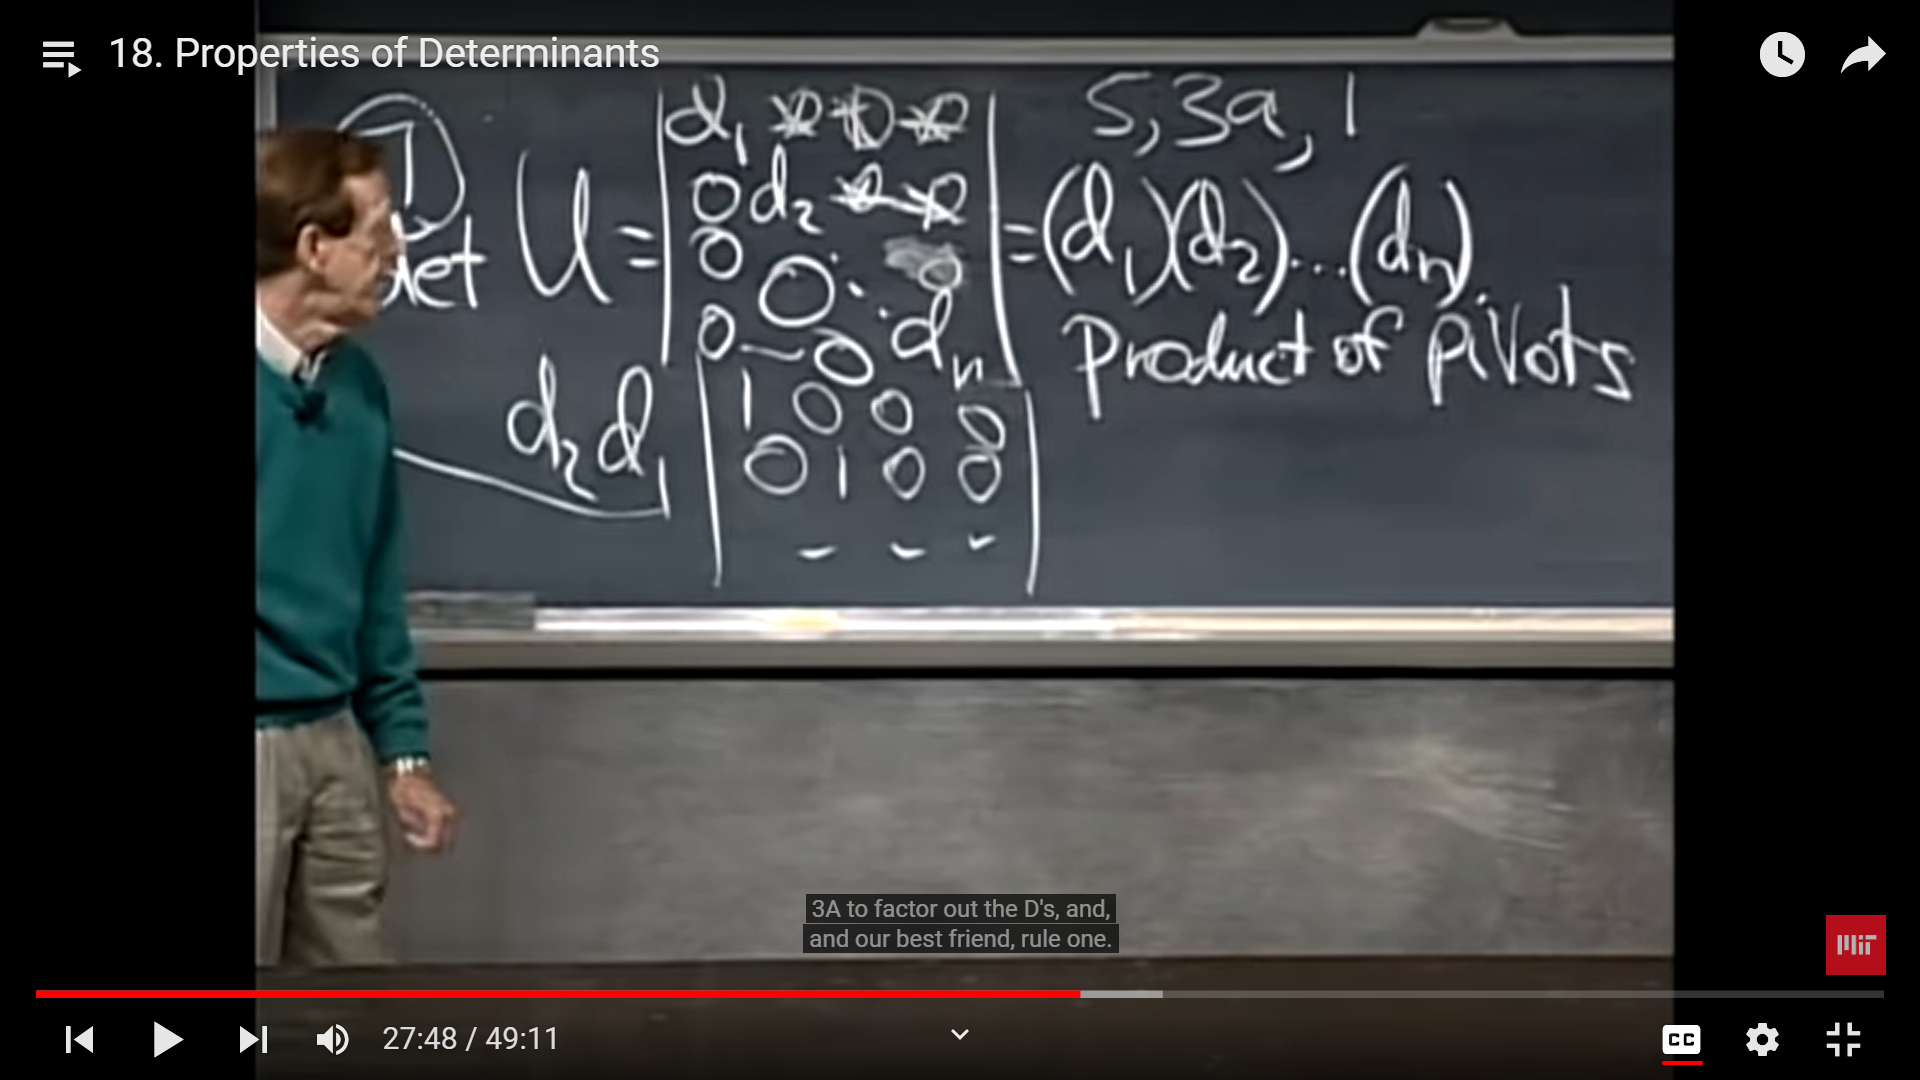 18. Properties of Determinants
5, 3a, 1
7
det U = | d₁ * 0 * 0 * 0 | = (d₁)(d₂)...(dₙ).
0 d₂ * 0 * 0
0 0 ⋱ 0
0 – 0 dₙ
Product of pivots
d₂ d₁ | 1 0 0 0 |
0 1 0 0
– – –
3A to factor out the D's, and,
and our best friend, rule one.
MIT
27:48 / 49:11
CC